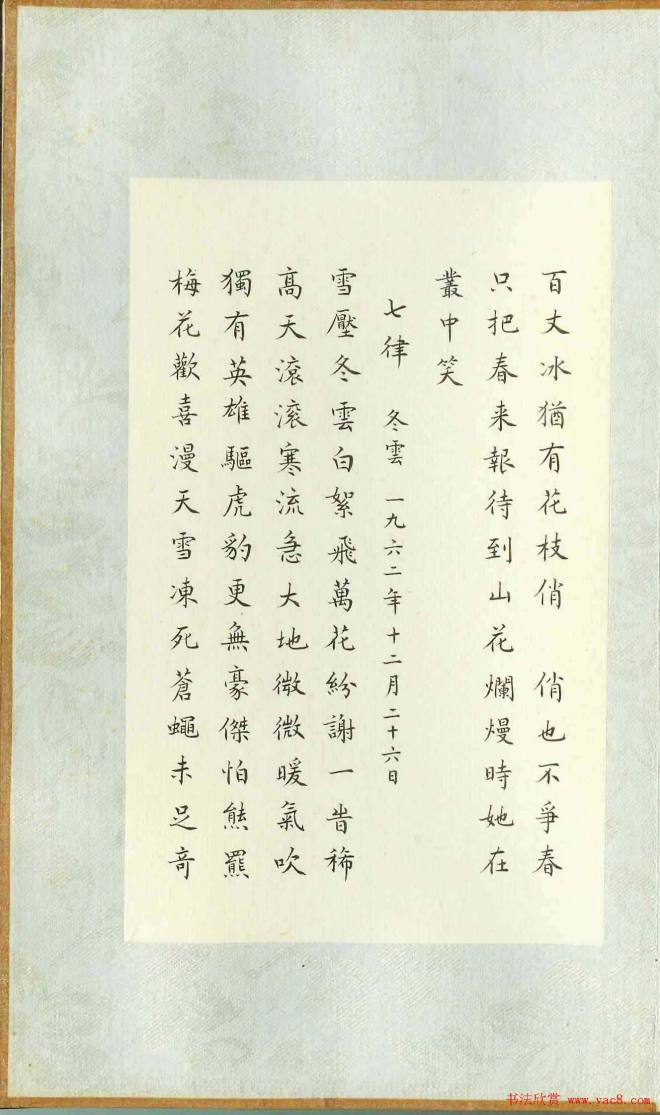 百丈冰猶有花枝俏　俏也不爭春
只把春来報待到山花爛熳時她在
叢中笑
七律　冬雲　一九六二年十二月二十六日
雪壓冬雲白絮飛萬花紛謝一昔稀
高天滚滚寒流急大地微微暖氣吹
獨有英雄驅虎豹更無豪傑怕熊羆
梅花歡喜漫天雪凍死蒼蠅未足奇
书法欣赏 www.yac8.com